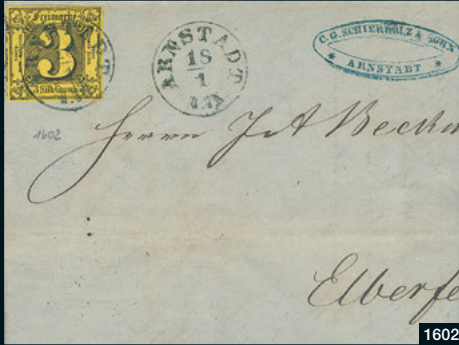 Freimarke
3
3 Silb. Grosch.
ARNSTADT
18
1
C. G. SCHIERHOLZ & SOHN
* ARNSTADT *
1602
Herrn J A Beckm
Elberfe
1602